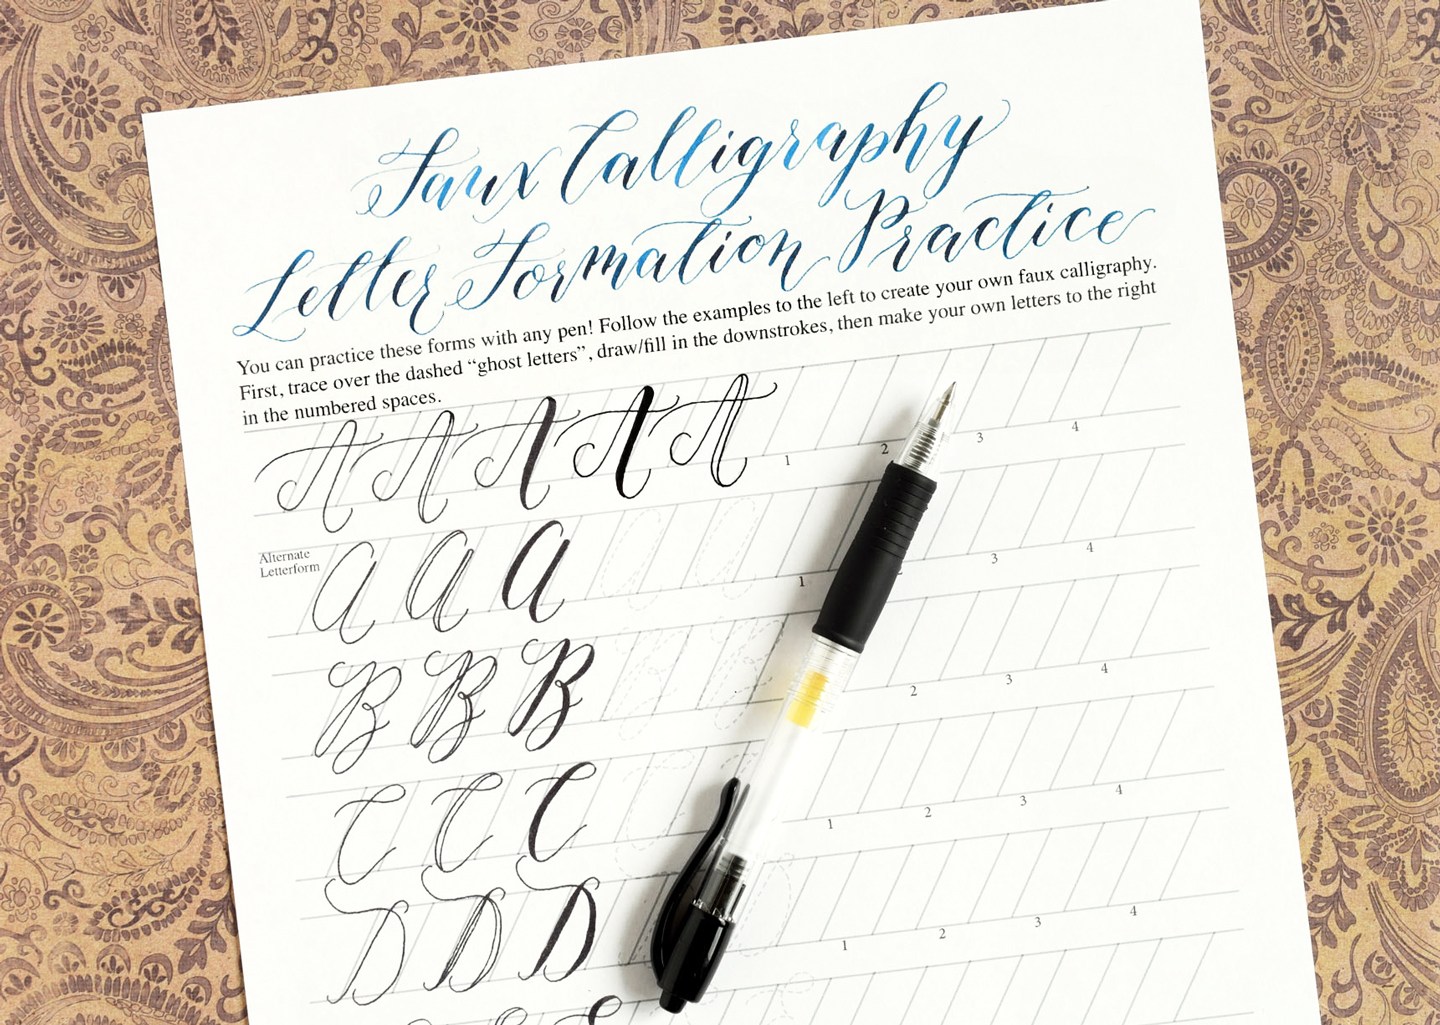 Faux Calligraphy
Letter Formation Practice
You can practice these forms with any pen! Follow the examples to the left to create your own faux calligraphy.
First, trace over the dashed “ghost letters”, draw/fill in the downstrokes, then make your own letters to the right
in the numbered spaces.
A A A A A 1 2 3 4
Alternate
Letterform
a a a 1 3 4
B B B 2 3 4
C C C 1 2 3 4
D D D 1 2 3 4